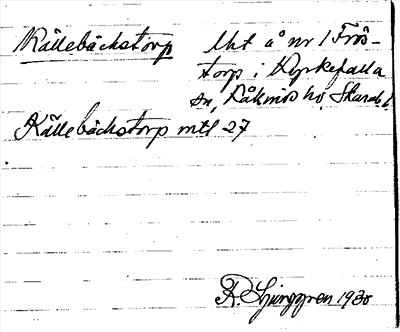 Källebäckstorp Uht å nr 1 Frös-
torp i Kyrkefalla
sn, Kåkinds hd, Skarab. l.
Källebäckstorp mtl 27
R. Ljunggren 1930